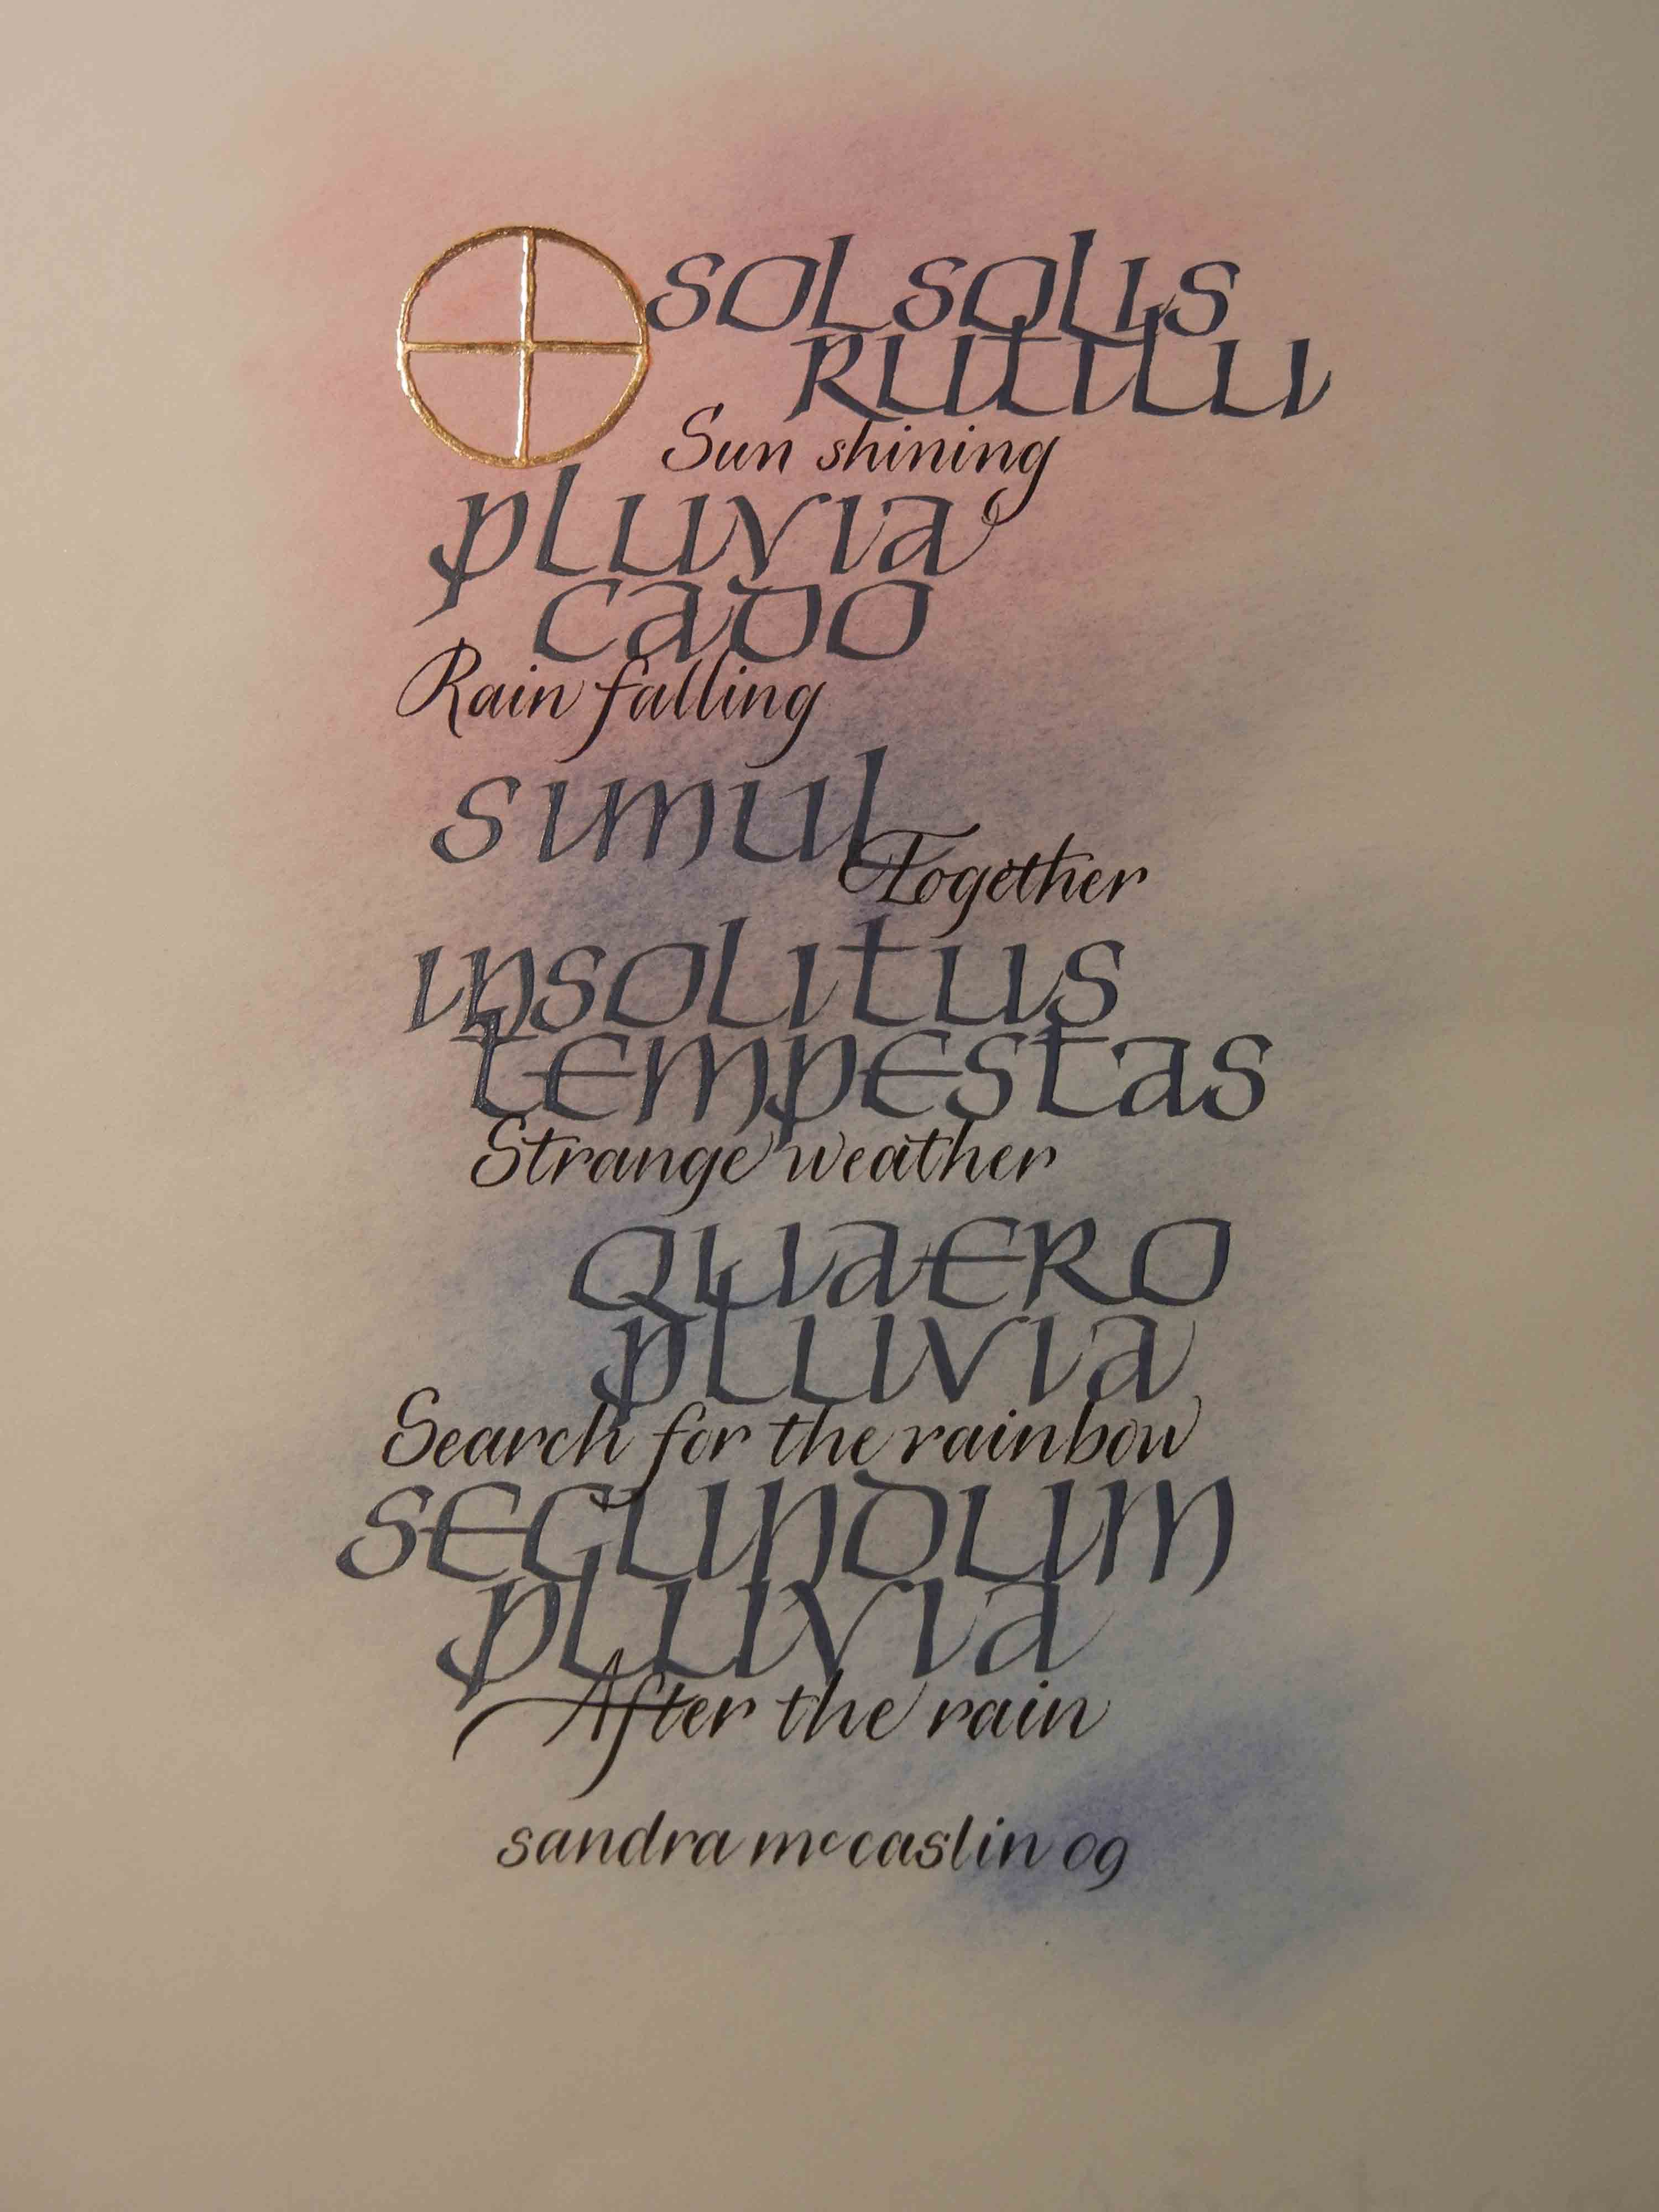 SOL SOLIS
RUTILUI
Sun shining
pluvia
cado
Rain falling
simul
Together
insolitus
tempestas
Strange weather
QUAERO
pluvia
Search for the rainbow
SECUNDUM
pluvia
After the rain
sandra mccaslin 09